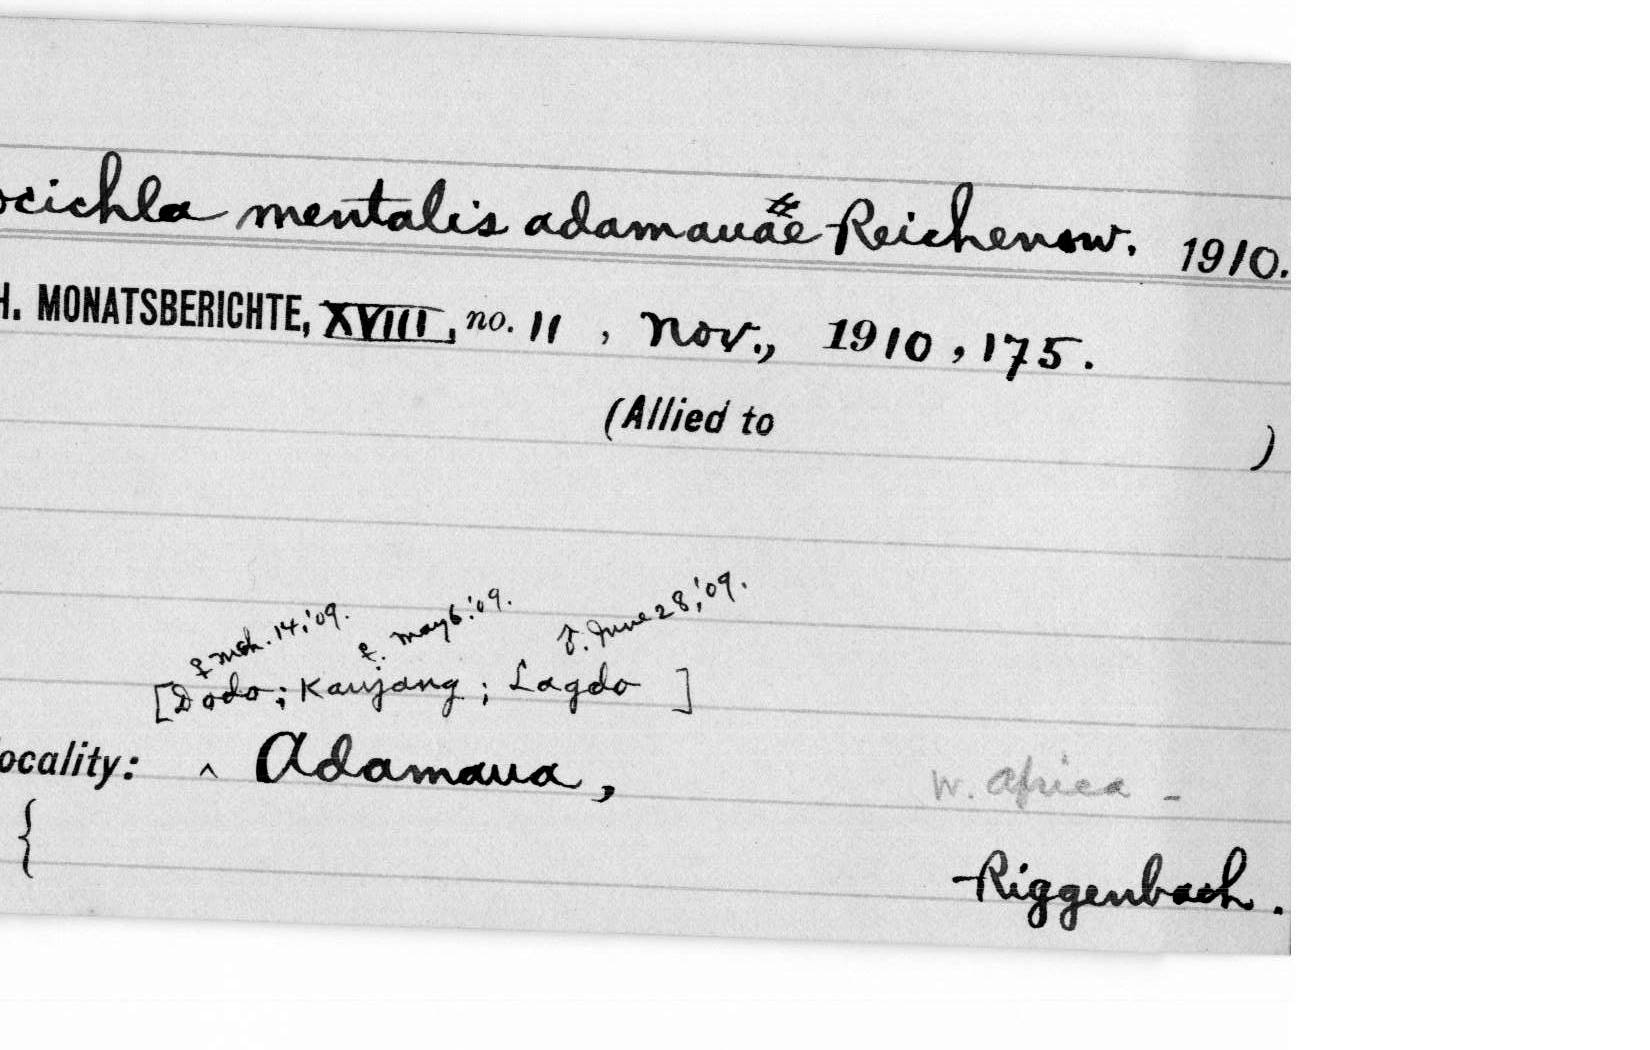 ocichla mentalis adamauae Reichenow. 1910.
H. MONATSBERICHTE, XVIII, no. 11 , Nov., 1910, 175.
(Allied to )
♀ Mch. 14,'09. ♀. May 6.'09. June 28,'09.
[Dodo; Kanjang; Lagdo ]
ocality: ^ Adamaua, W. Africa -
{
Riggenbach.